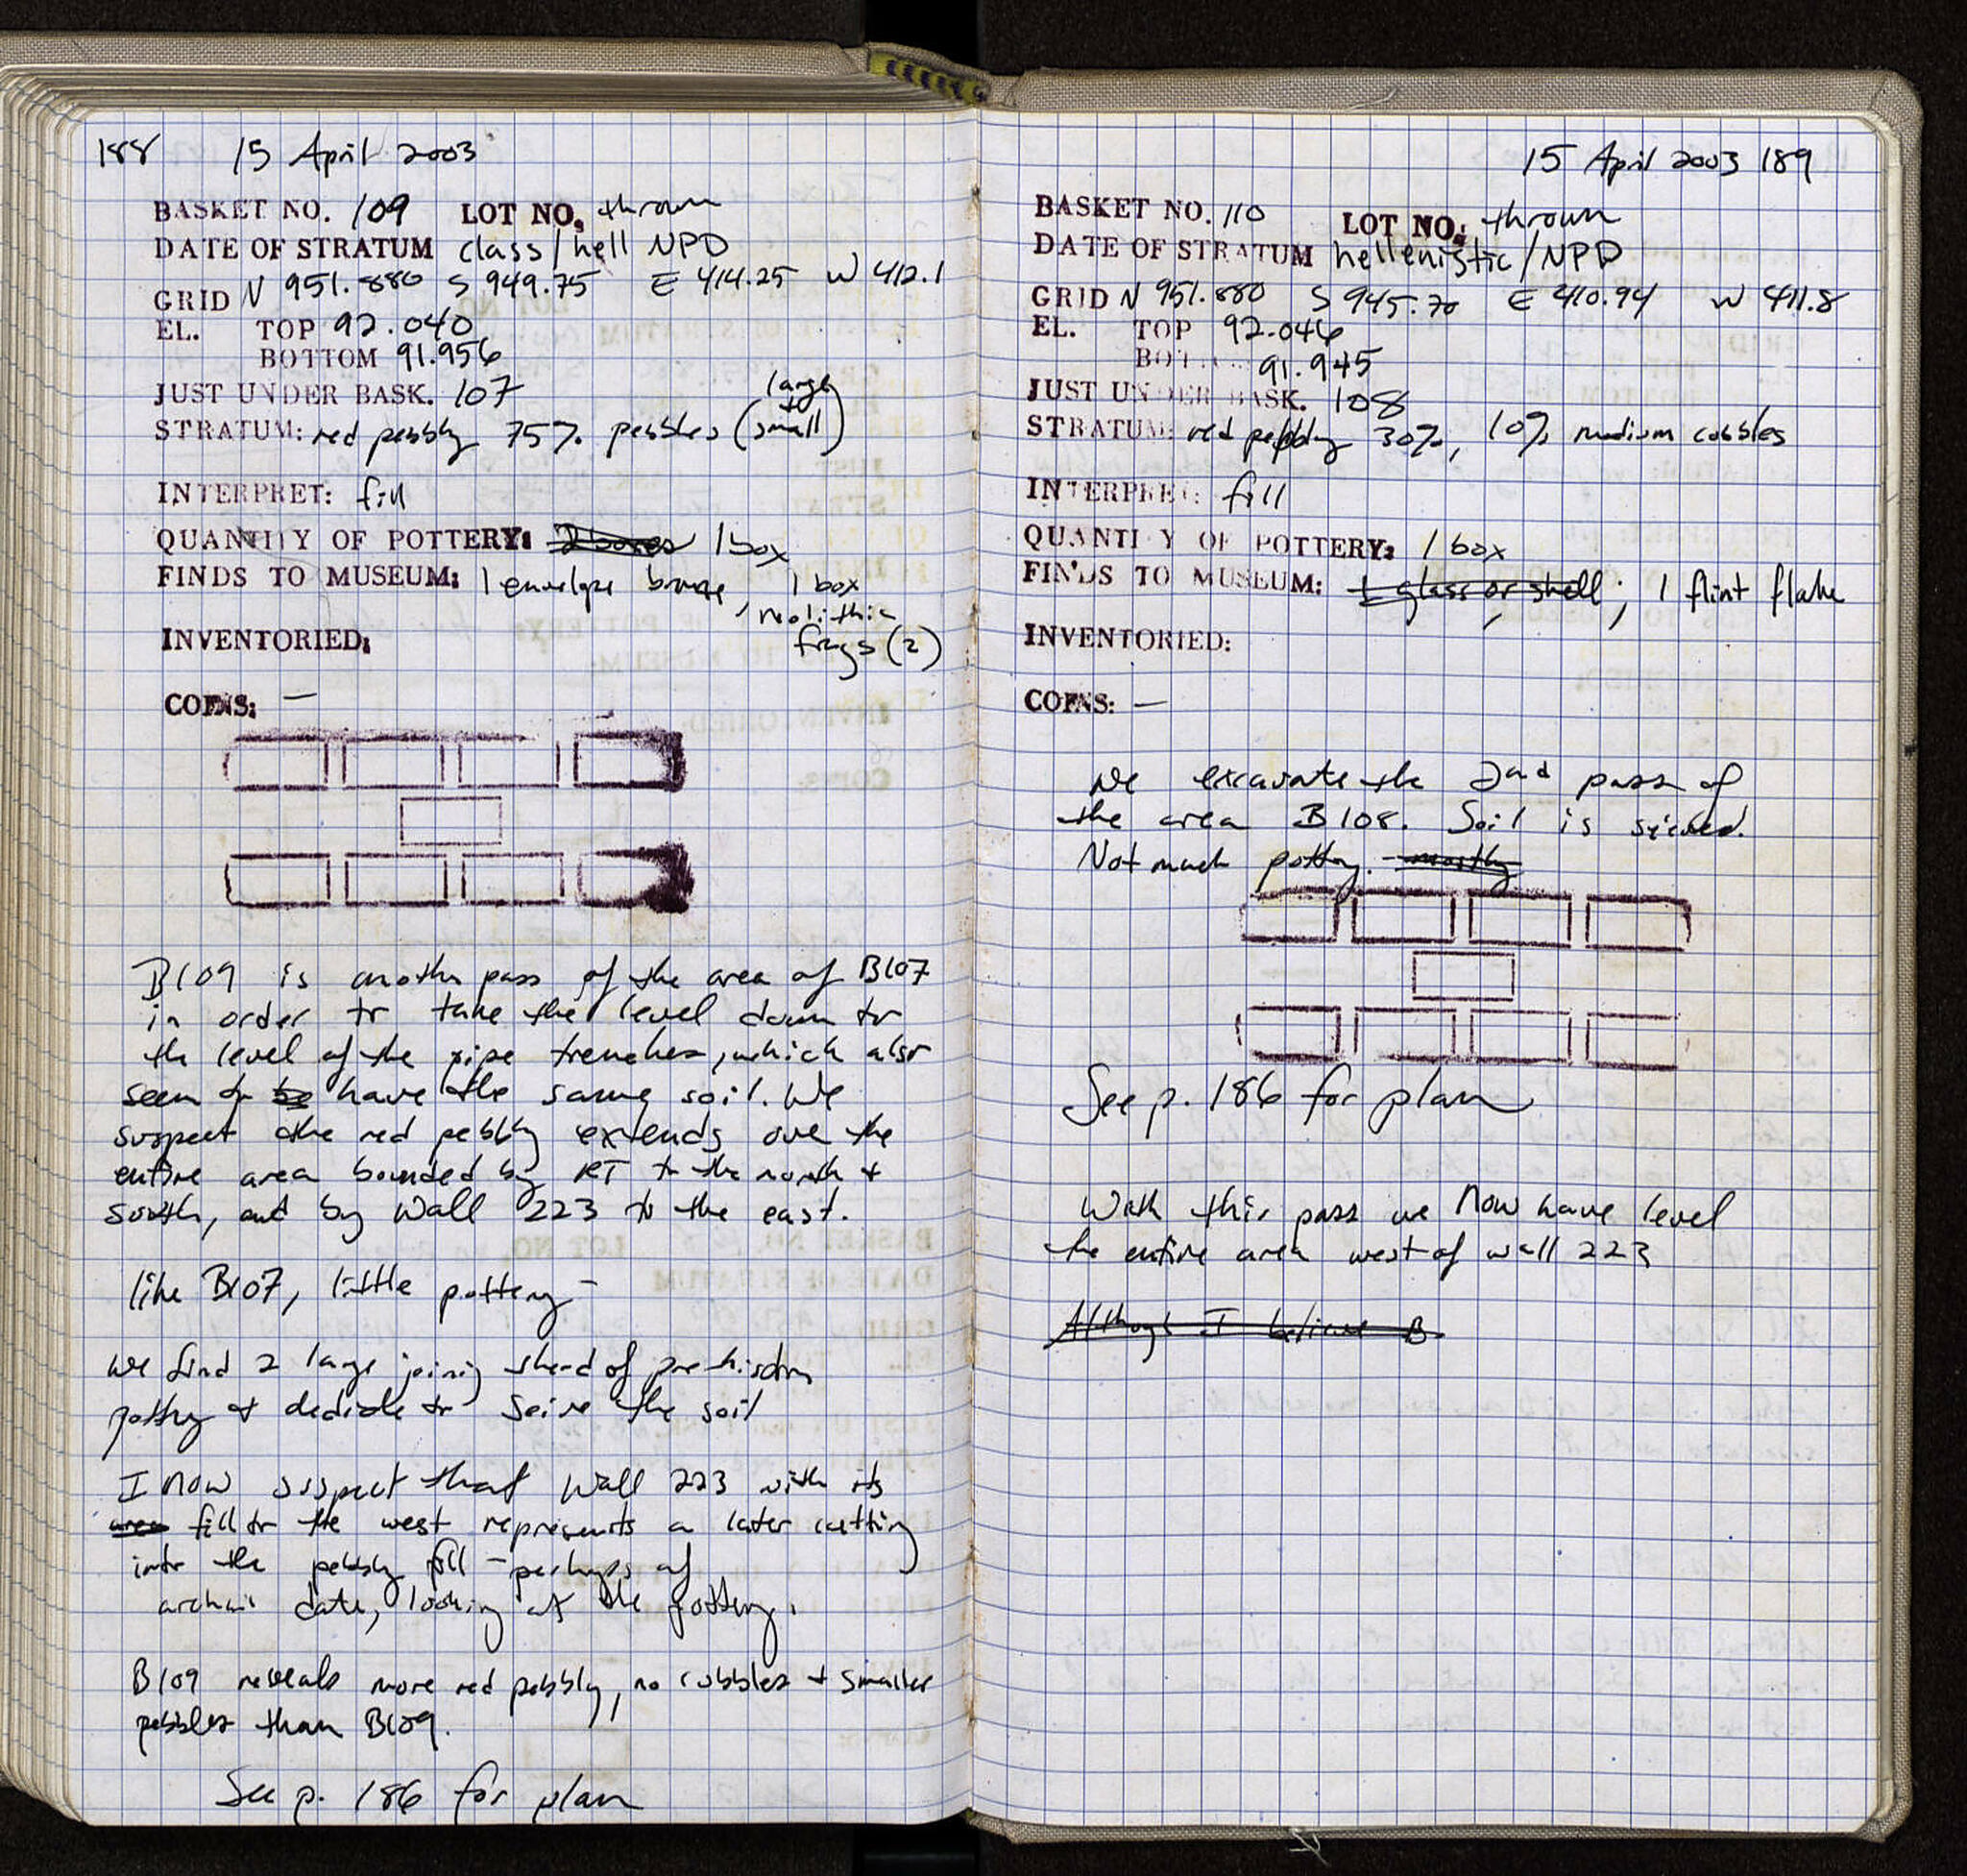 188 15 April 2003
BASKET NO. 109 LOT NO. thrown
DATE OF STRATUM class/hell NPD
GRID N 951.880 S 949.75 E 414.25 W 412.1
EL. TOP 92.040
BOTTOM 91.956
JUST UNDER BASK. 107
STRATUM: red pebbly 75% pebbles (large + small)
INTERPRET: fill
QUANTITY OF POTTERY: 2 boxes 1 box
FINDS TO MUSEUM: 1 envelope bronze, 1 box
neolithic
INVENTORIED: frags (2)
COINS: —
B109 is another pass of the area of B107
in order to take the level down to
the level of the pipe trenches, which also
seem to be have the same soil. We
suspect the red pebbly extends over the
entire area bounded by RT to the north +
south, and by Wall 223 to the east.
like B107, little pottery –
we find 2 large joining sherd of prehistoric
pottery + dedide to seive the soil
I now suspect that Wall 223 with its
area fill to the west represents a later cutting
into the pebbly fill – perhaps of
archaic date, looking at the pottery.
B109 reveals more red pebbly, no cobbles + smaller
pebbles than B109.
See p. 186 for plan
15 April 2003 189
BASKET NO. 110 LOT NO. thrown
DATE OF STRATUM hellenistic/NPD
GRID N 951.880 S 945.70 E 410.94 W 411.8
EL. TOP 92.046
BOT 91.945
JUST UNDER BASK. 108
STRATUM: red pebbly 30%, 10% medium cobbles
INTERPRET: fill
QUANTITY OF POTTERY: 1 box
FINDS TO MUSEUM: 1 glass or shell; 1 flint flake
INVENTORIED:
COINS: —
We excavate the 2nd pass of
the area B108. Soil is seived.
Not much pottery. mostly
See p. 186 for plan
With this pass we now have level
the entire area west of wall 223
Although I believe B